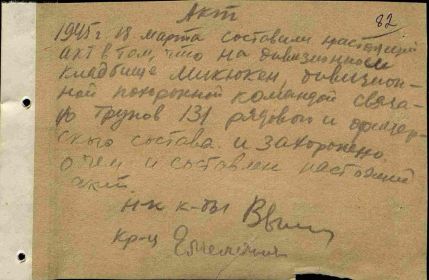 Акт
82
1945 г 18 марта составили настоящий
акт в том, что на дивизионном
кладбище Микюкен, дивизион-
ной похоронной командой свеза-
но трупов 131 рядовой и офицер-
ского состава и захоронено.
о чем и составлен настоящий
акт.
Н-к к-ды
кр-ц